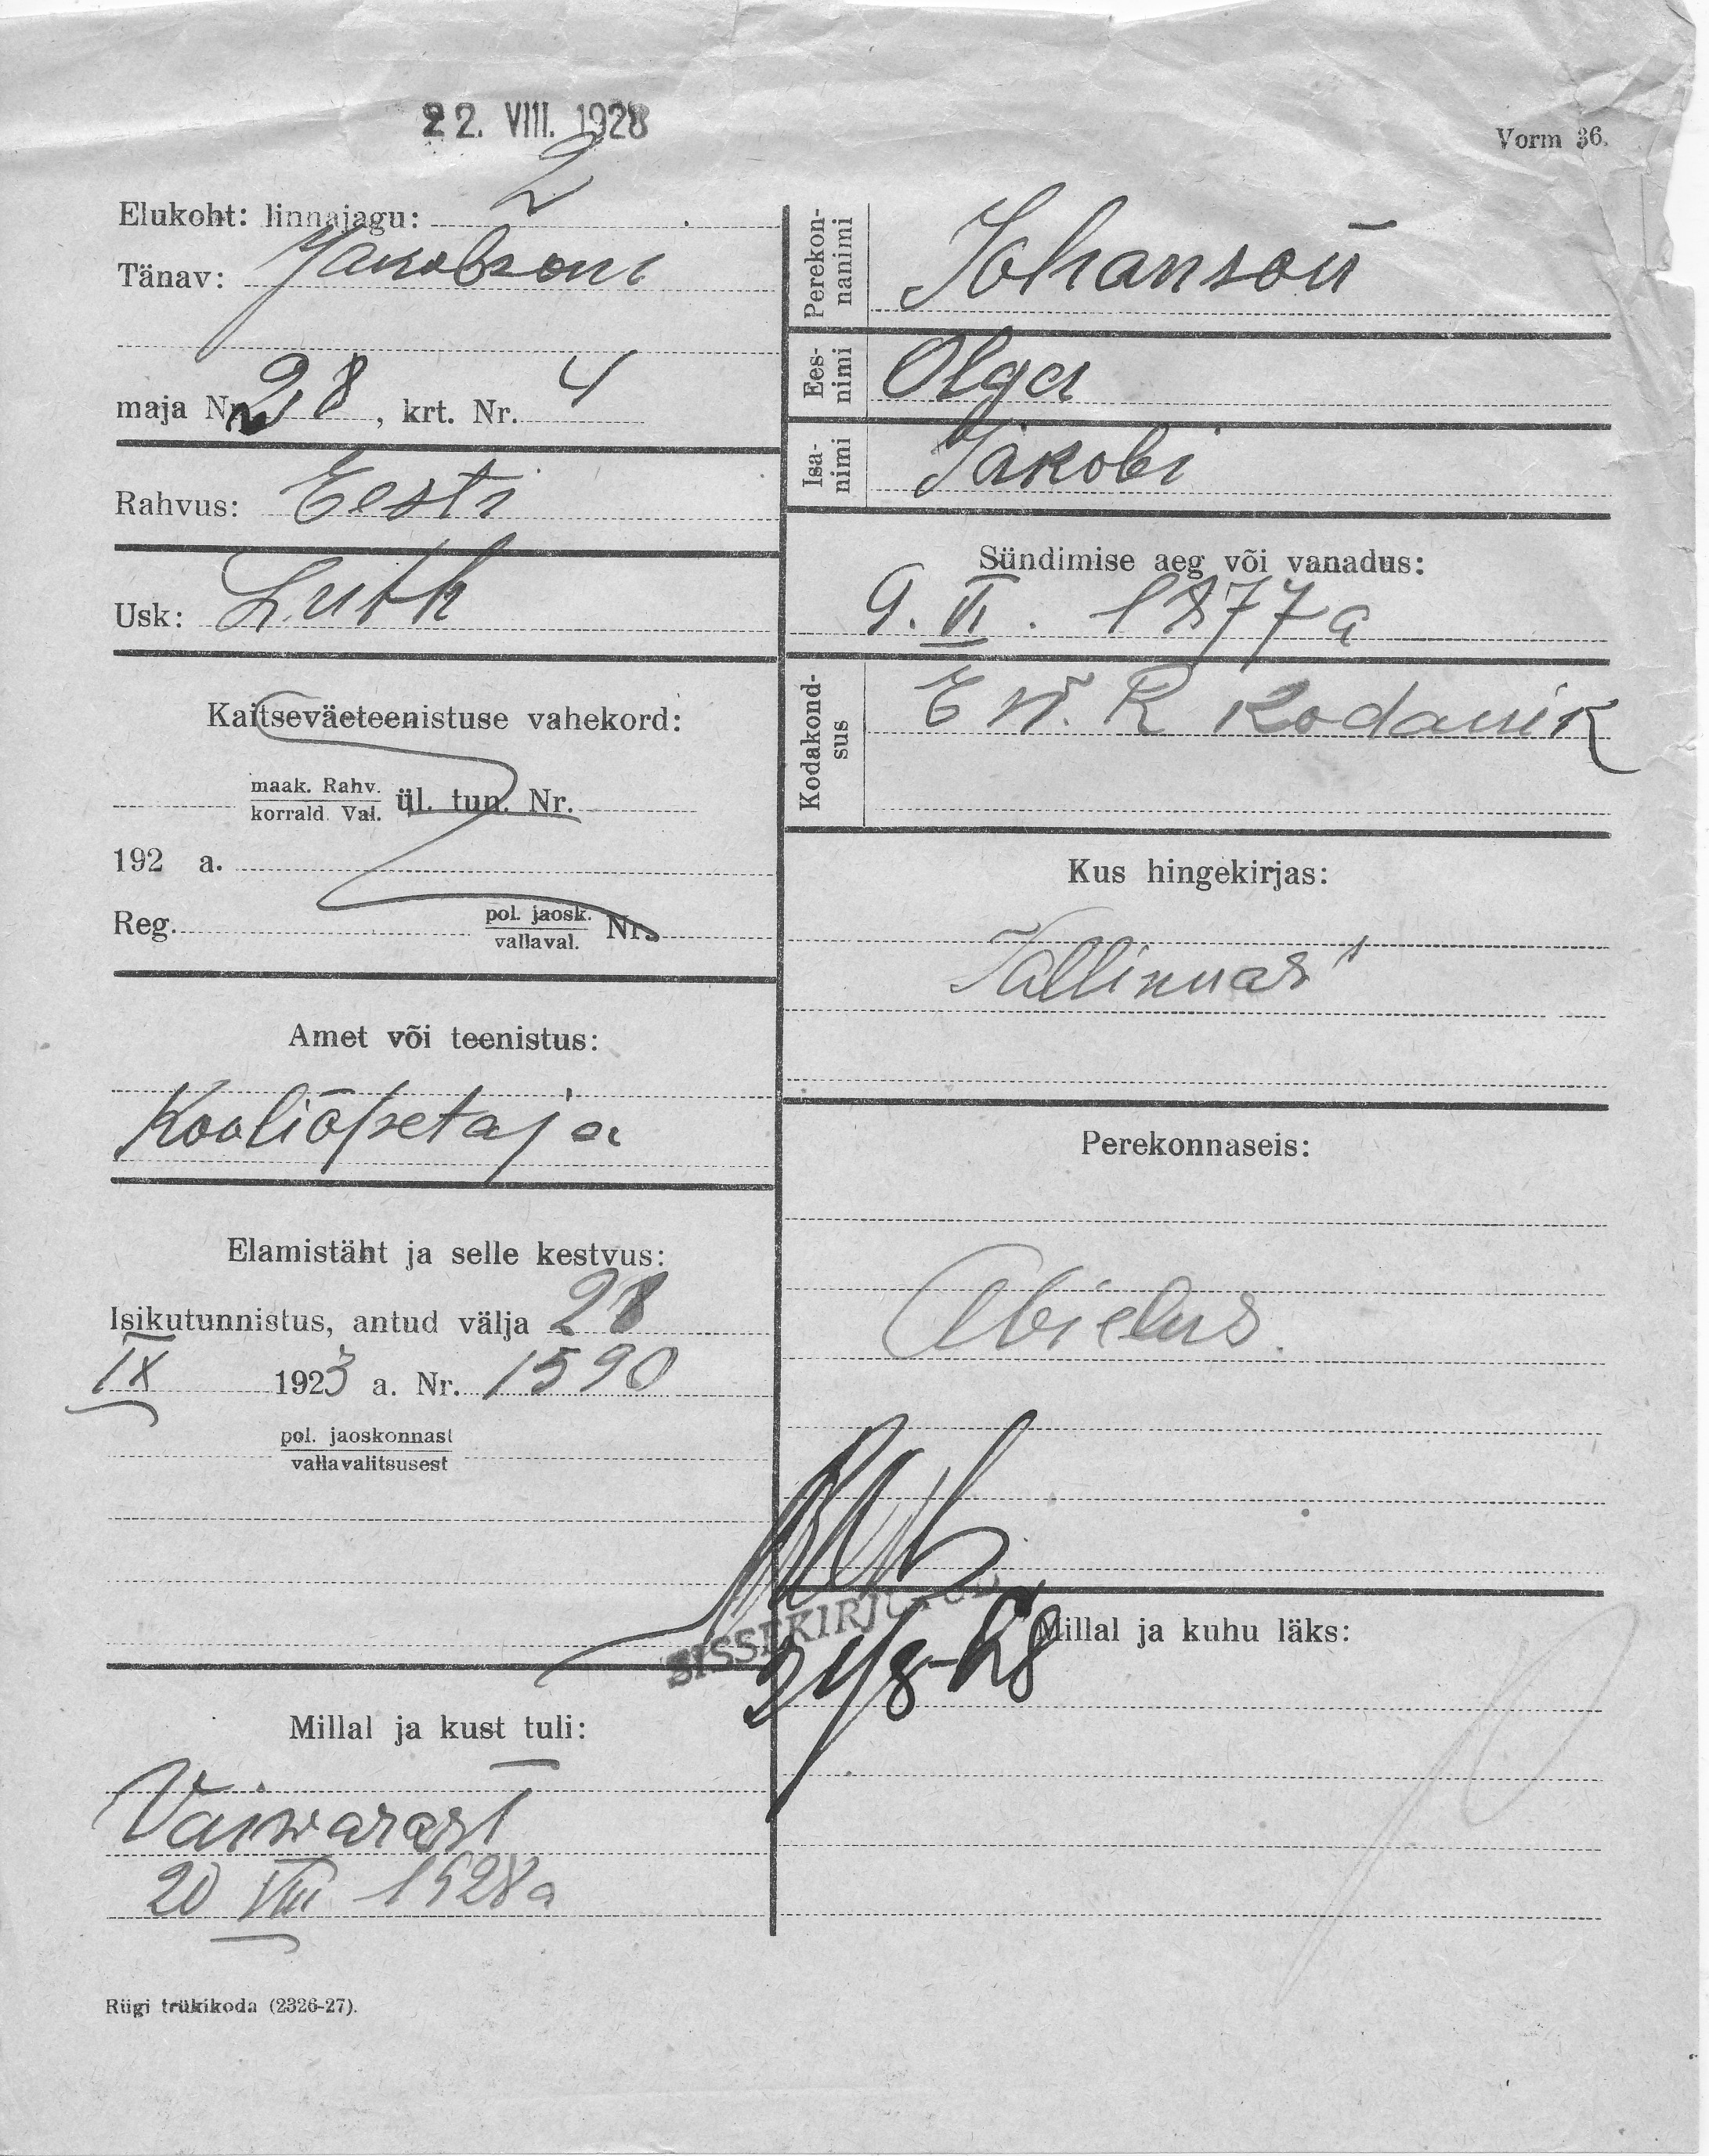 22. VIII. 1928
Vorm 36.
Elukoht: linnajagu: 2
Tänav: Jakobsoni
maja Nr. 28, krt. Nr. 4
Rahvus: Eesti
Usk: Luth
Kaitseväeteenistuse vahekord:
maak. Rahv.
korrald. Val. ül. tun. Nr.
192 a.
Reg. pol. jaosk.
vallaval. Nr.
Amet või teenistus:
Kooliõpetaja
Elamistäht ja selle kestvus:
Isikutunnistus, antud välja 28
IX 1923 a. Nr. 1590
pol. jaoskonnast
vallavalitsusest
Millal ja kust tuli:
Vaiwarast
20 VIII 1928 a
Perekon-
nanimi Johanson
Ees-
nimi Olga
Isa-
nimi Jakobi
Sündimise aeg või vanadus:
9. VI. 1877 a
Kodakond-
sus E W. R Kodanik
Kus hingekirjas:
Tallinnas
Perekonnaseis:
Abielus.
SISSEKIRJUTUD
Millal ja kuhu läks:
Riigi trükikoda (2326-27).